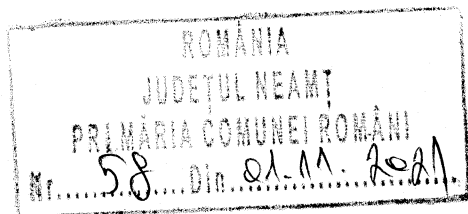 ROMÂNIA
JUDEŢUL NEAMŢ
PRIMĂRIA COMUNEI ROMÂNI
Nr. 58 Din 01.11.2021